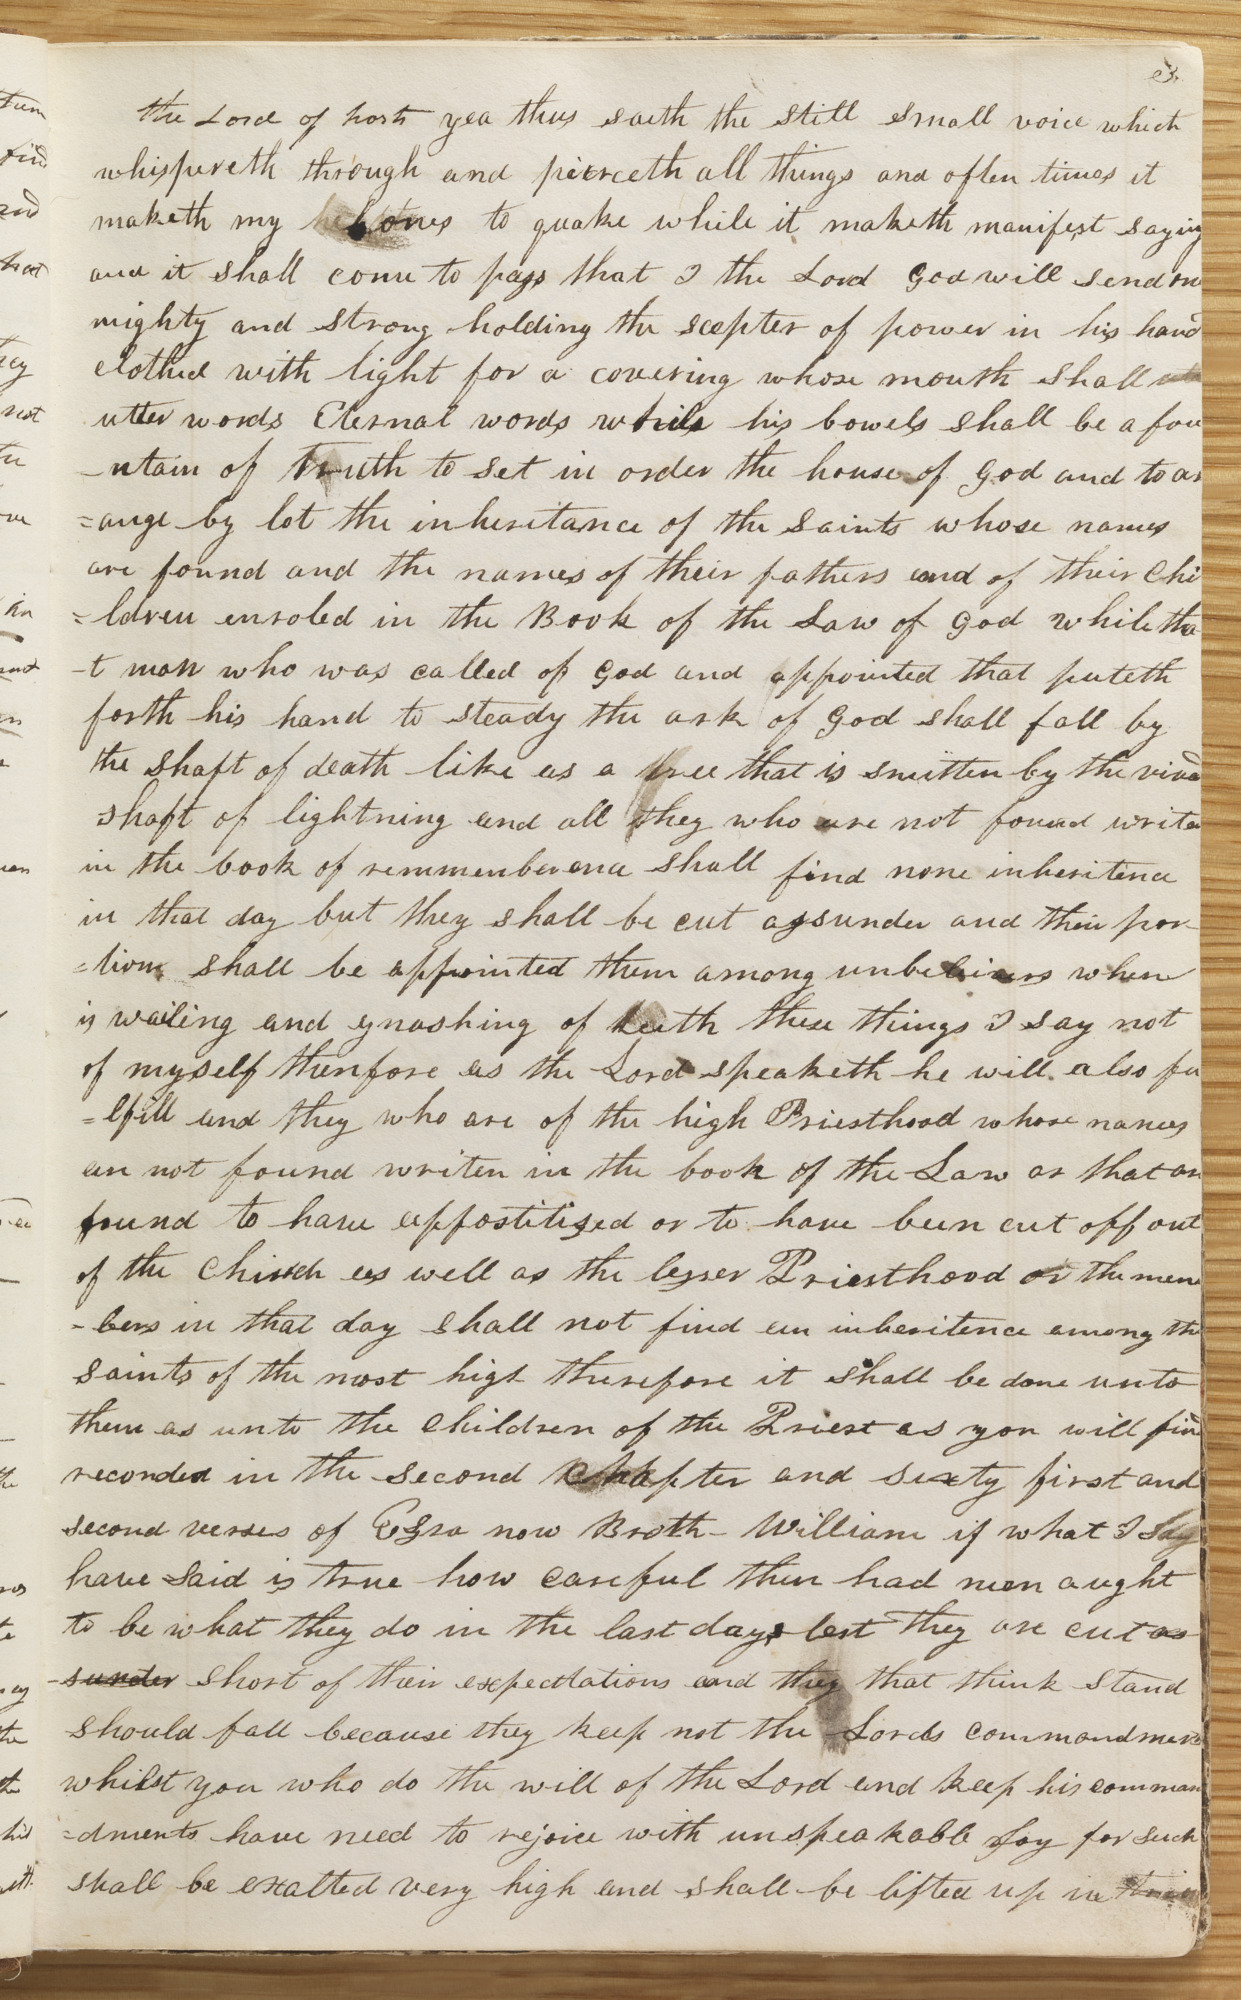 the Lord of hosts yea thus saith the still small voice which
whispereth through and peirceth all things and often times it
maketh my bones to quake while it maketh manifest saying
and it shall come to pass that I the Lord God will send one
mighty and strong holding the scepter of power in his hand
clothed with light for a covering whose mouth shall
utter words Eternal words while his bowels shall be a fou
-ntain of truth to set in order the house of God and to ar
=ange by lot the inheritance of the saints whose names
are found and the names of their fathers and of their Chi
=ldren enroled in the Book of the Law of God while tha
-t man who was called of God and appointed that puteth
forth his hand to steady the ark of God shall fall by
the shaft of death like as a tree that is smitten by the vivid
shaft of lightning and all they who are not found writen
in the book of remmemberence shall find none inheritence
in that day but they shall be cut assunder and their por
=tion shall be appointed them among unbeleivers where
is wailing and gnashing of teeth these things I say not
of myself therefore as the Lord speaketh he will also fu
=lfill and they who are of the high Priesthood whose names
are not found writen in the book of the Law or that are
found to have appostitised or to have been cut off out
of the Church as well as the lesser Priesthood or the mem
-bers in that day shall not find an inheritence among the
saints of the most high therefore it shall be done unto
them as unto the children of the Priest as you will find
recorded in the second Chapter and sixty first and
second verses of Ezra now Broth- William if what I say
have said is true how careful then had men aught
to be what they do in the last days lest they are cut as
-sunder short of their expectations and they that think stand
should fall because they keep not the Lords commandments
whilst you who do the will of the Lord and keep his comman
=dments have need to rejoice with unspeakable Joy for such
shall be exalted very high and shall be lifted up in